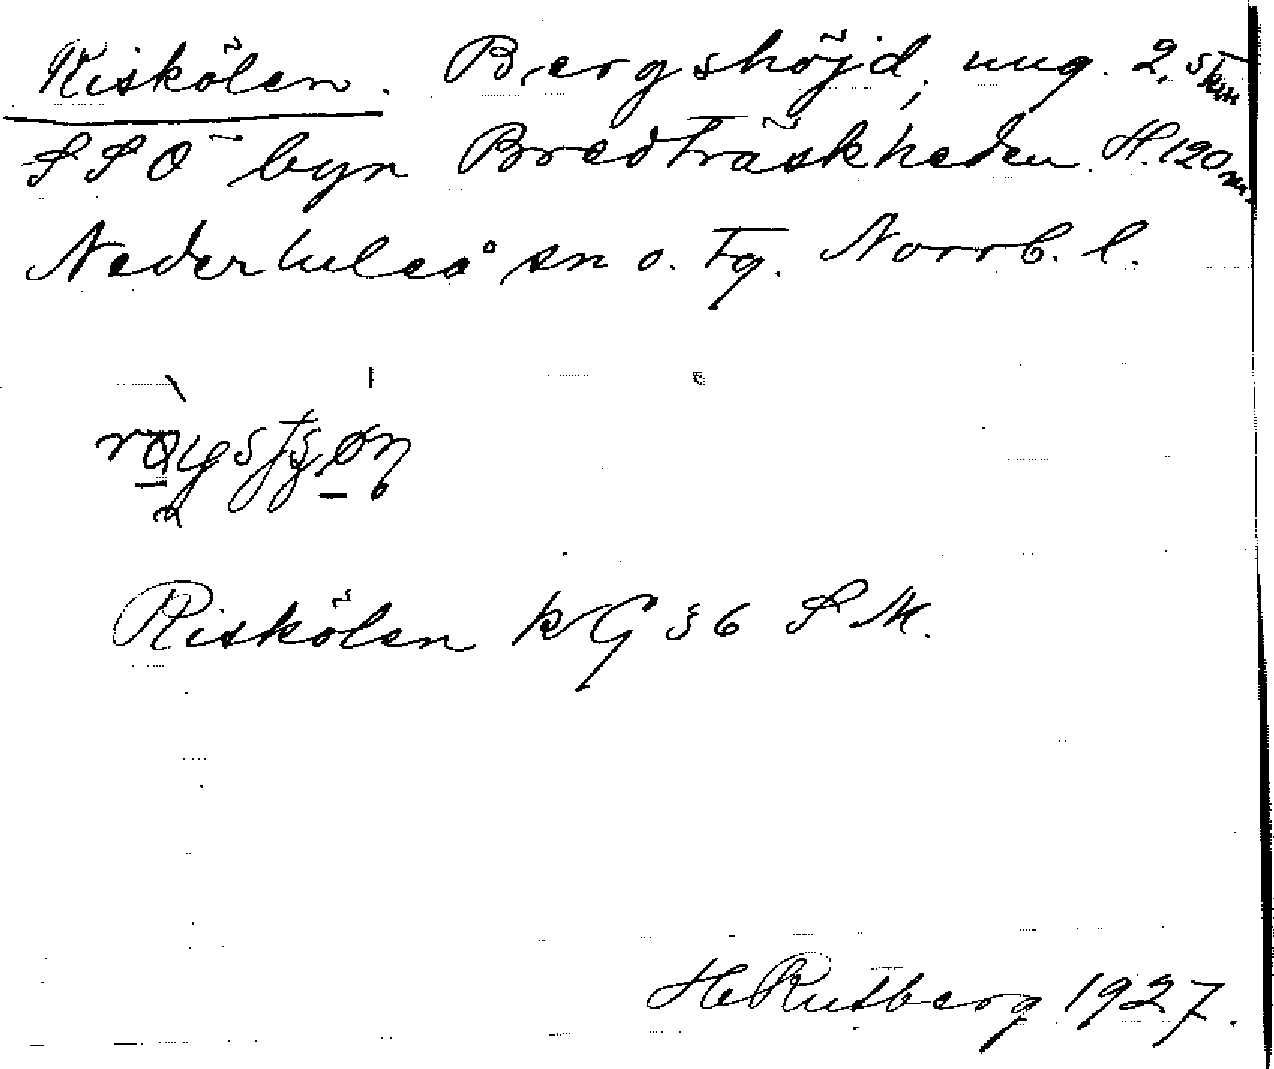 Riskölen. Bergshöjd, ung. 2,5 km
SSÖ byn Bredträskheden. H. 120 m.
Nederluleå sn o. tg. Norrb. l.
Riskölen kG 36 S M.
H Rutberg 1927.